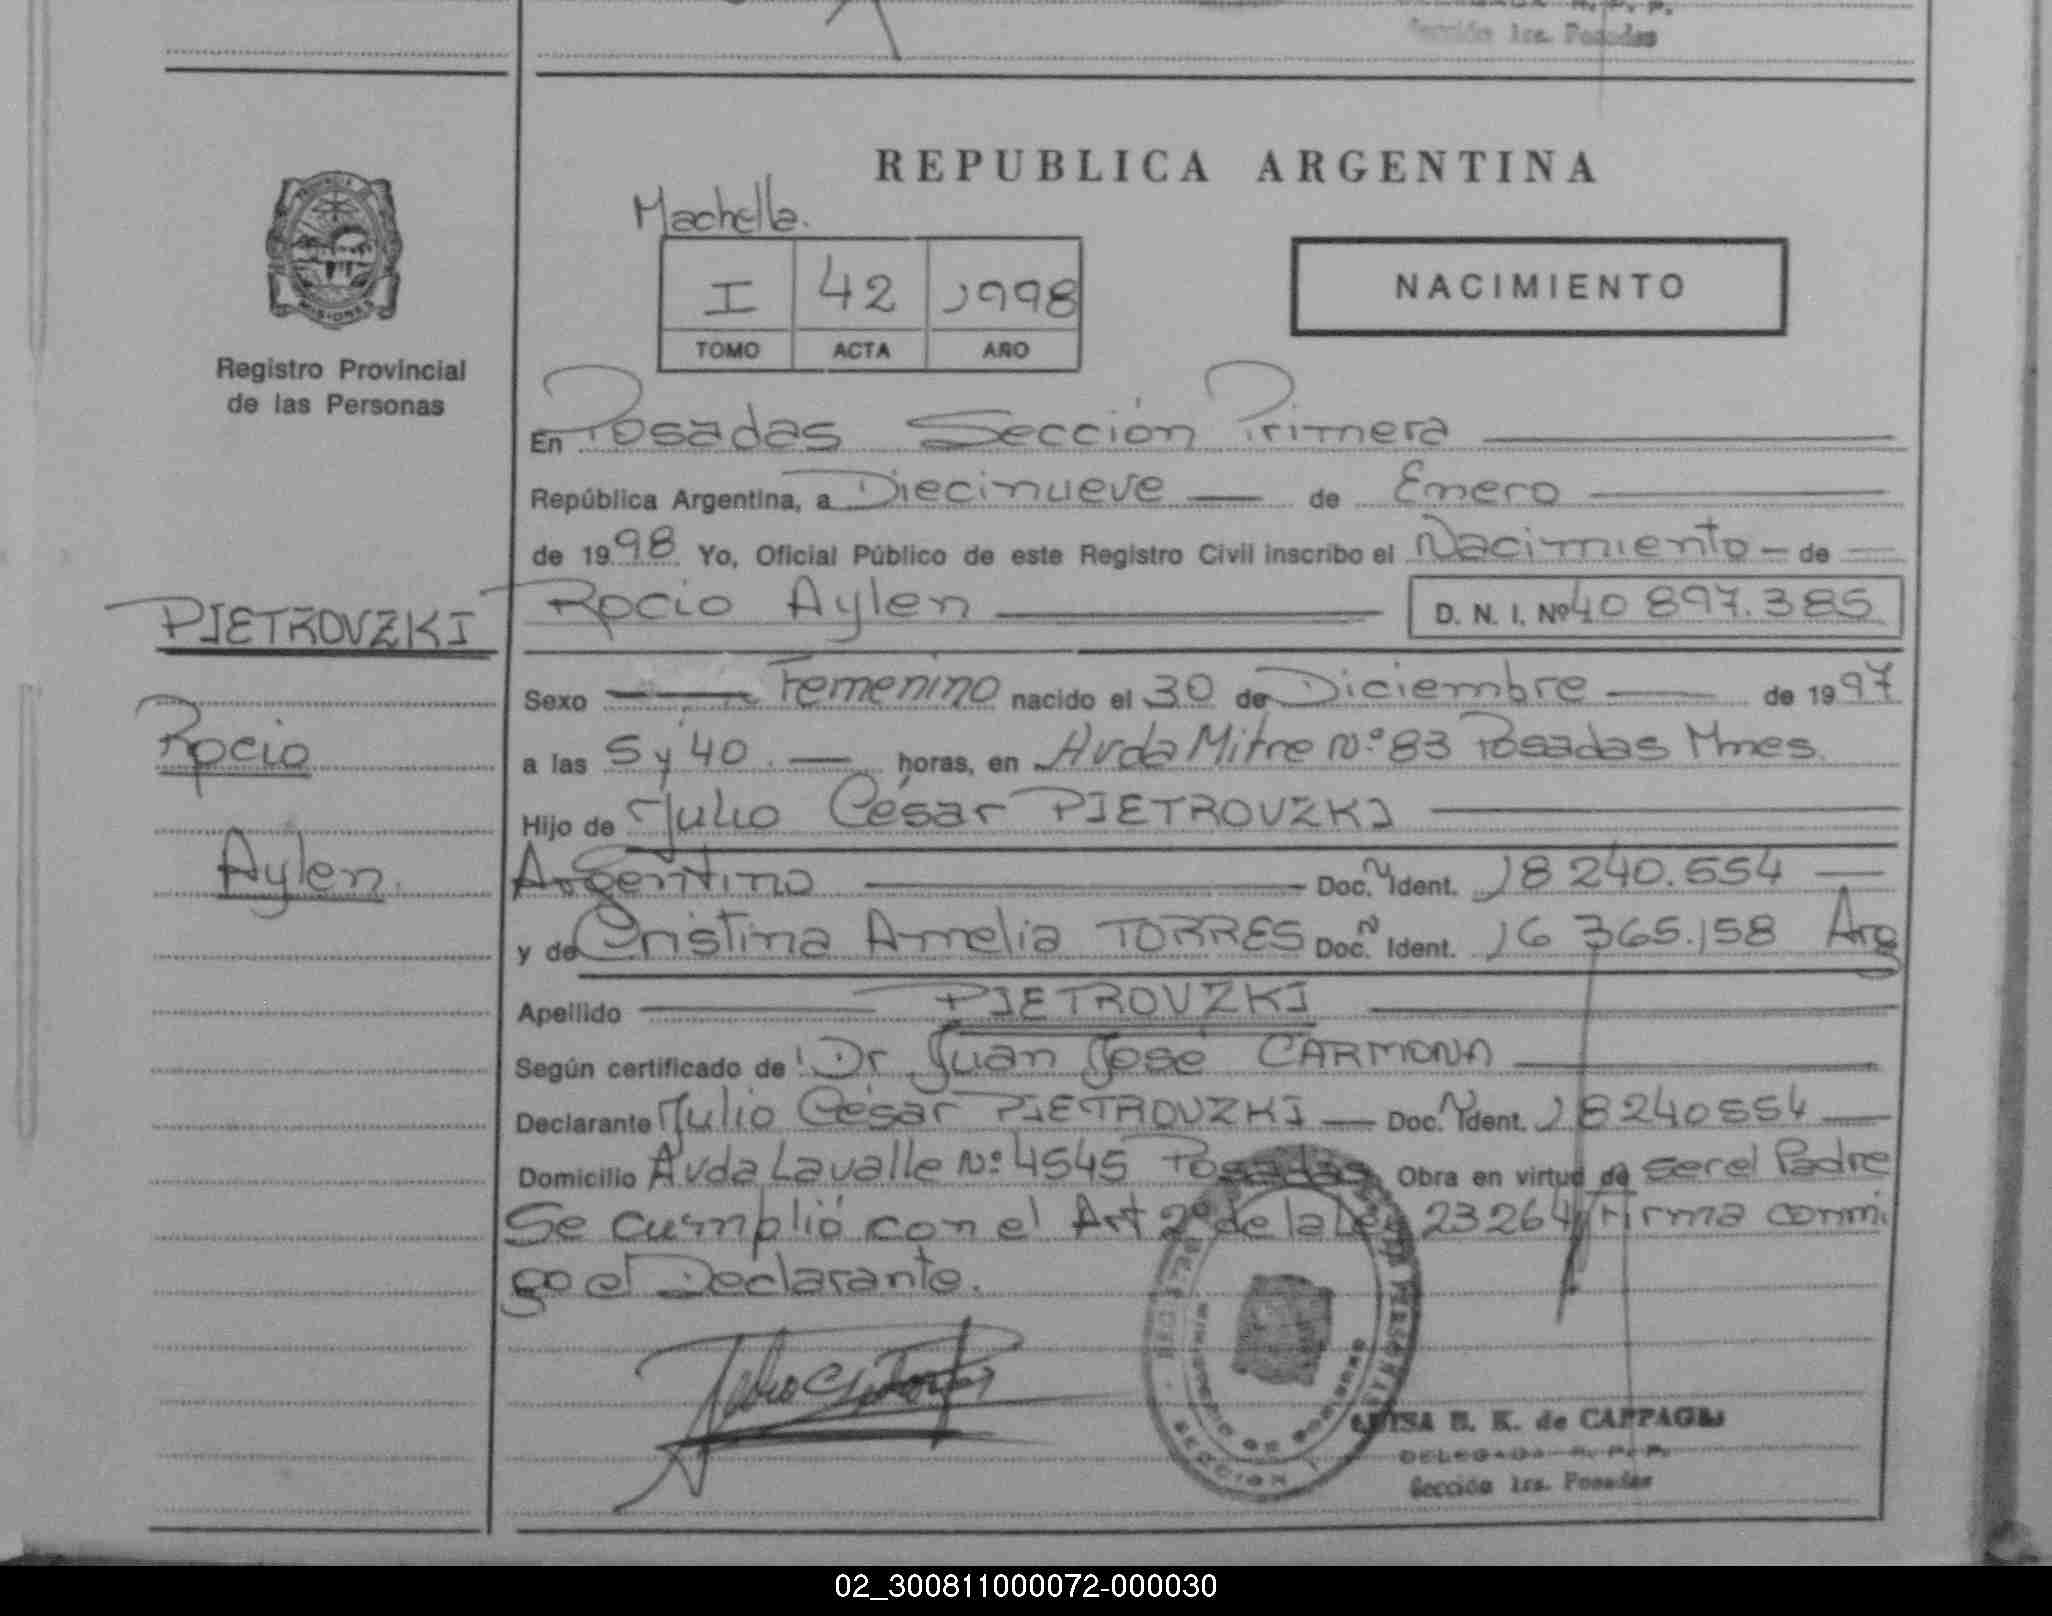 Sección 1ra. Posadas
REPUBLICA ARGENTINA
Machella.
I 42 1998
TOMO ACTA AÑO
NACIMIENTO
Registro Provincial
de las Personas
En Posadas Sección Primera
República Argentina, a Diecinueve de Enero
de 1998 Yo, Oficial Público de este Registro Civil inscribo el Nacimiento de
Rocio Aylen D. N. I. Nº 40 897.385
PIETROVZKI
Rocio
Aylen.
Sexo Femenino nacido el 30 de Diciembre de 1997
a las 5 y 40. horas, en Avda Mitre Nº 83 Posadas Mnes.
Hijo de Julio César PIETROVZKI
Argentino Doc. N Ident. 18 240.554
y de Cristina Amelia TORRES Doc. N Ident. 16 365.158 Arg
Apellido PIETROVZKI
Según certificado de Dr Juan José CARMONA
Declarante Julio César PIETROVZKI Doc. N Ident. 18240554
Domicilio Avda Lavalle Nº 4545 Posadas Obra en virtud de ser el Padre
Se cumplió con el Art 2º de la Ley 23264 Firma conmi
go el Declarante.
SECCION 1
LUISA B. K. de CAPPAGLI
DELEGADA R. P. P.
Sección 1ra. Posadas
02_300811000072-000030